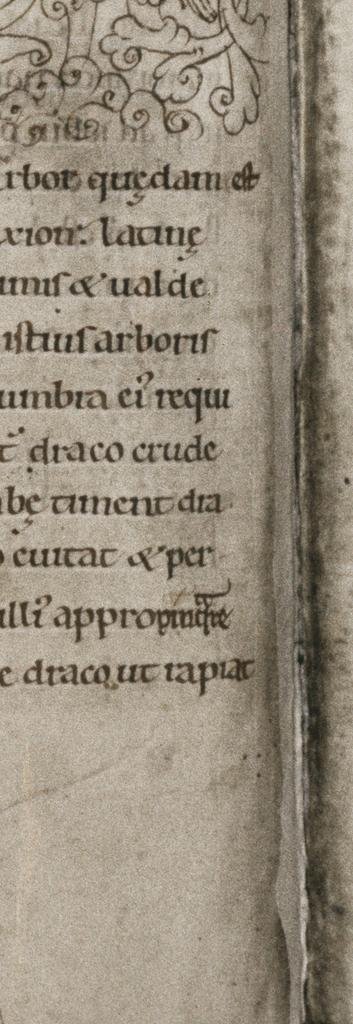 arbor quędam est
xion. latinę
imis & ualde
istius arboris
umbra ei' requi
t draco crude
bę timent dra
euitat & per
illi' appropinq̅re
e draco ut rapiat